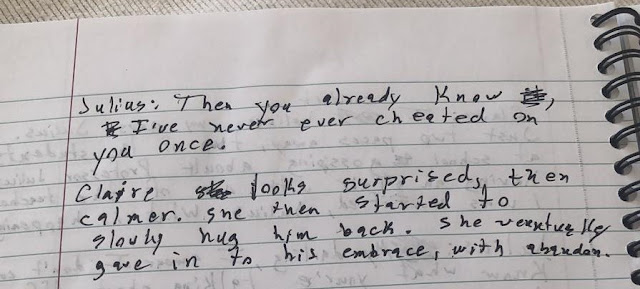 Julius: Then you already know,
I've never ever cheated on
you once.
Claire looks surprised, then
calmer. She then started to
slowly hug him back. She
gave in to his embrace, with abandon.